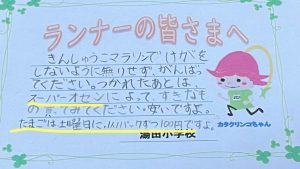 ランナーの皆さまへ
きんしゅうこマラソンでけがを
しないように無りせず、がんばっ
てください。つかれたあとは、
スーパーオセンによってすきなも
の買ってみてください。安いですよ。
たまごは土曜日に、1人1パックずつ100円ですよ。
湯田小学校
カタクリンコちゃん